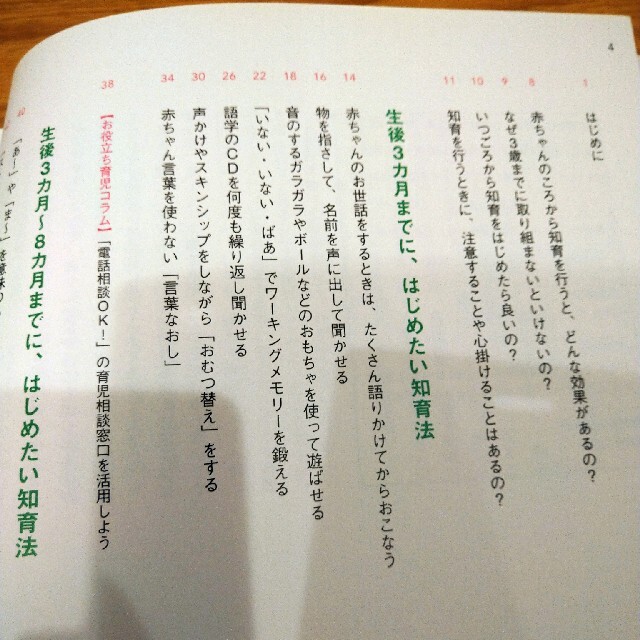 4
1 はじめに
8 赤ちゃんのころから知育を行うと、どんな効果があるの？
9 なぜ3歳までに取り組まないといけないの？
10 いつごろから知育をはじめたら良いの？
11 知育を行うときに、注意することや心掛けることはあるの？
生後3カ月までに、はじめたい知育法
14 赤ちゃんのお世話をするときは、たくさん語りかけてからおこなう
16 物を指さして、名前を声に出して聞かせる
18 音のするガラガラやボールなどのおもちゃを使って遊ばせる
22 「いない・いない・ばあ」でワーキングメモリーを鍛える
26 語学のCDを何度も繰り返し聞かせる
30 声かけやスキンシップをしながら「おむつ替え」をする
34 赤ちゃん言葉を使わない「言葉なおし」
38 【お役立ち育児コラム】「電話相談OK！」の育児相談窓口を活用しよう
生後3カ月～8カ月までに、はじめたい知育法
「あー」や「まー」を